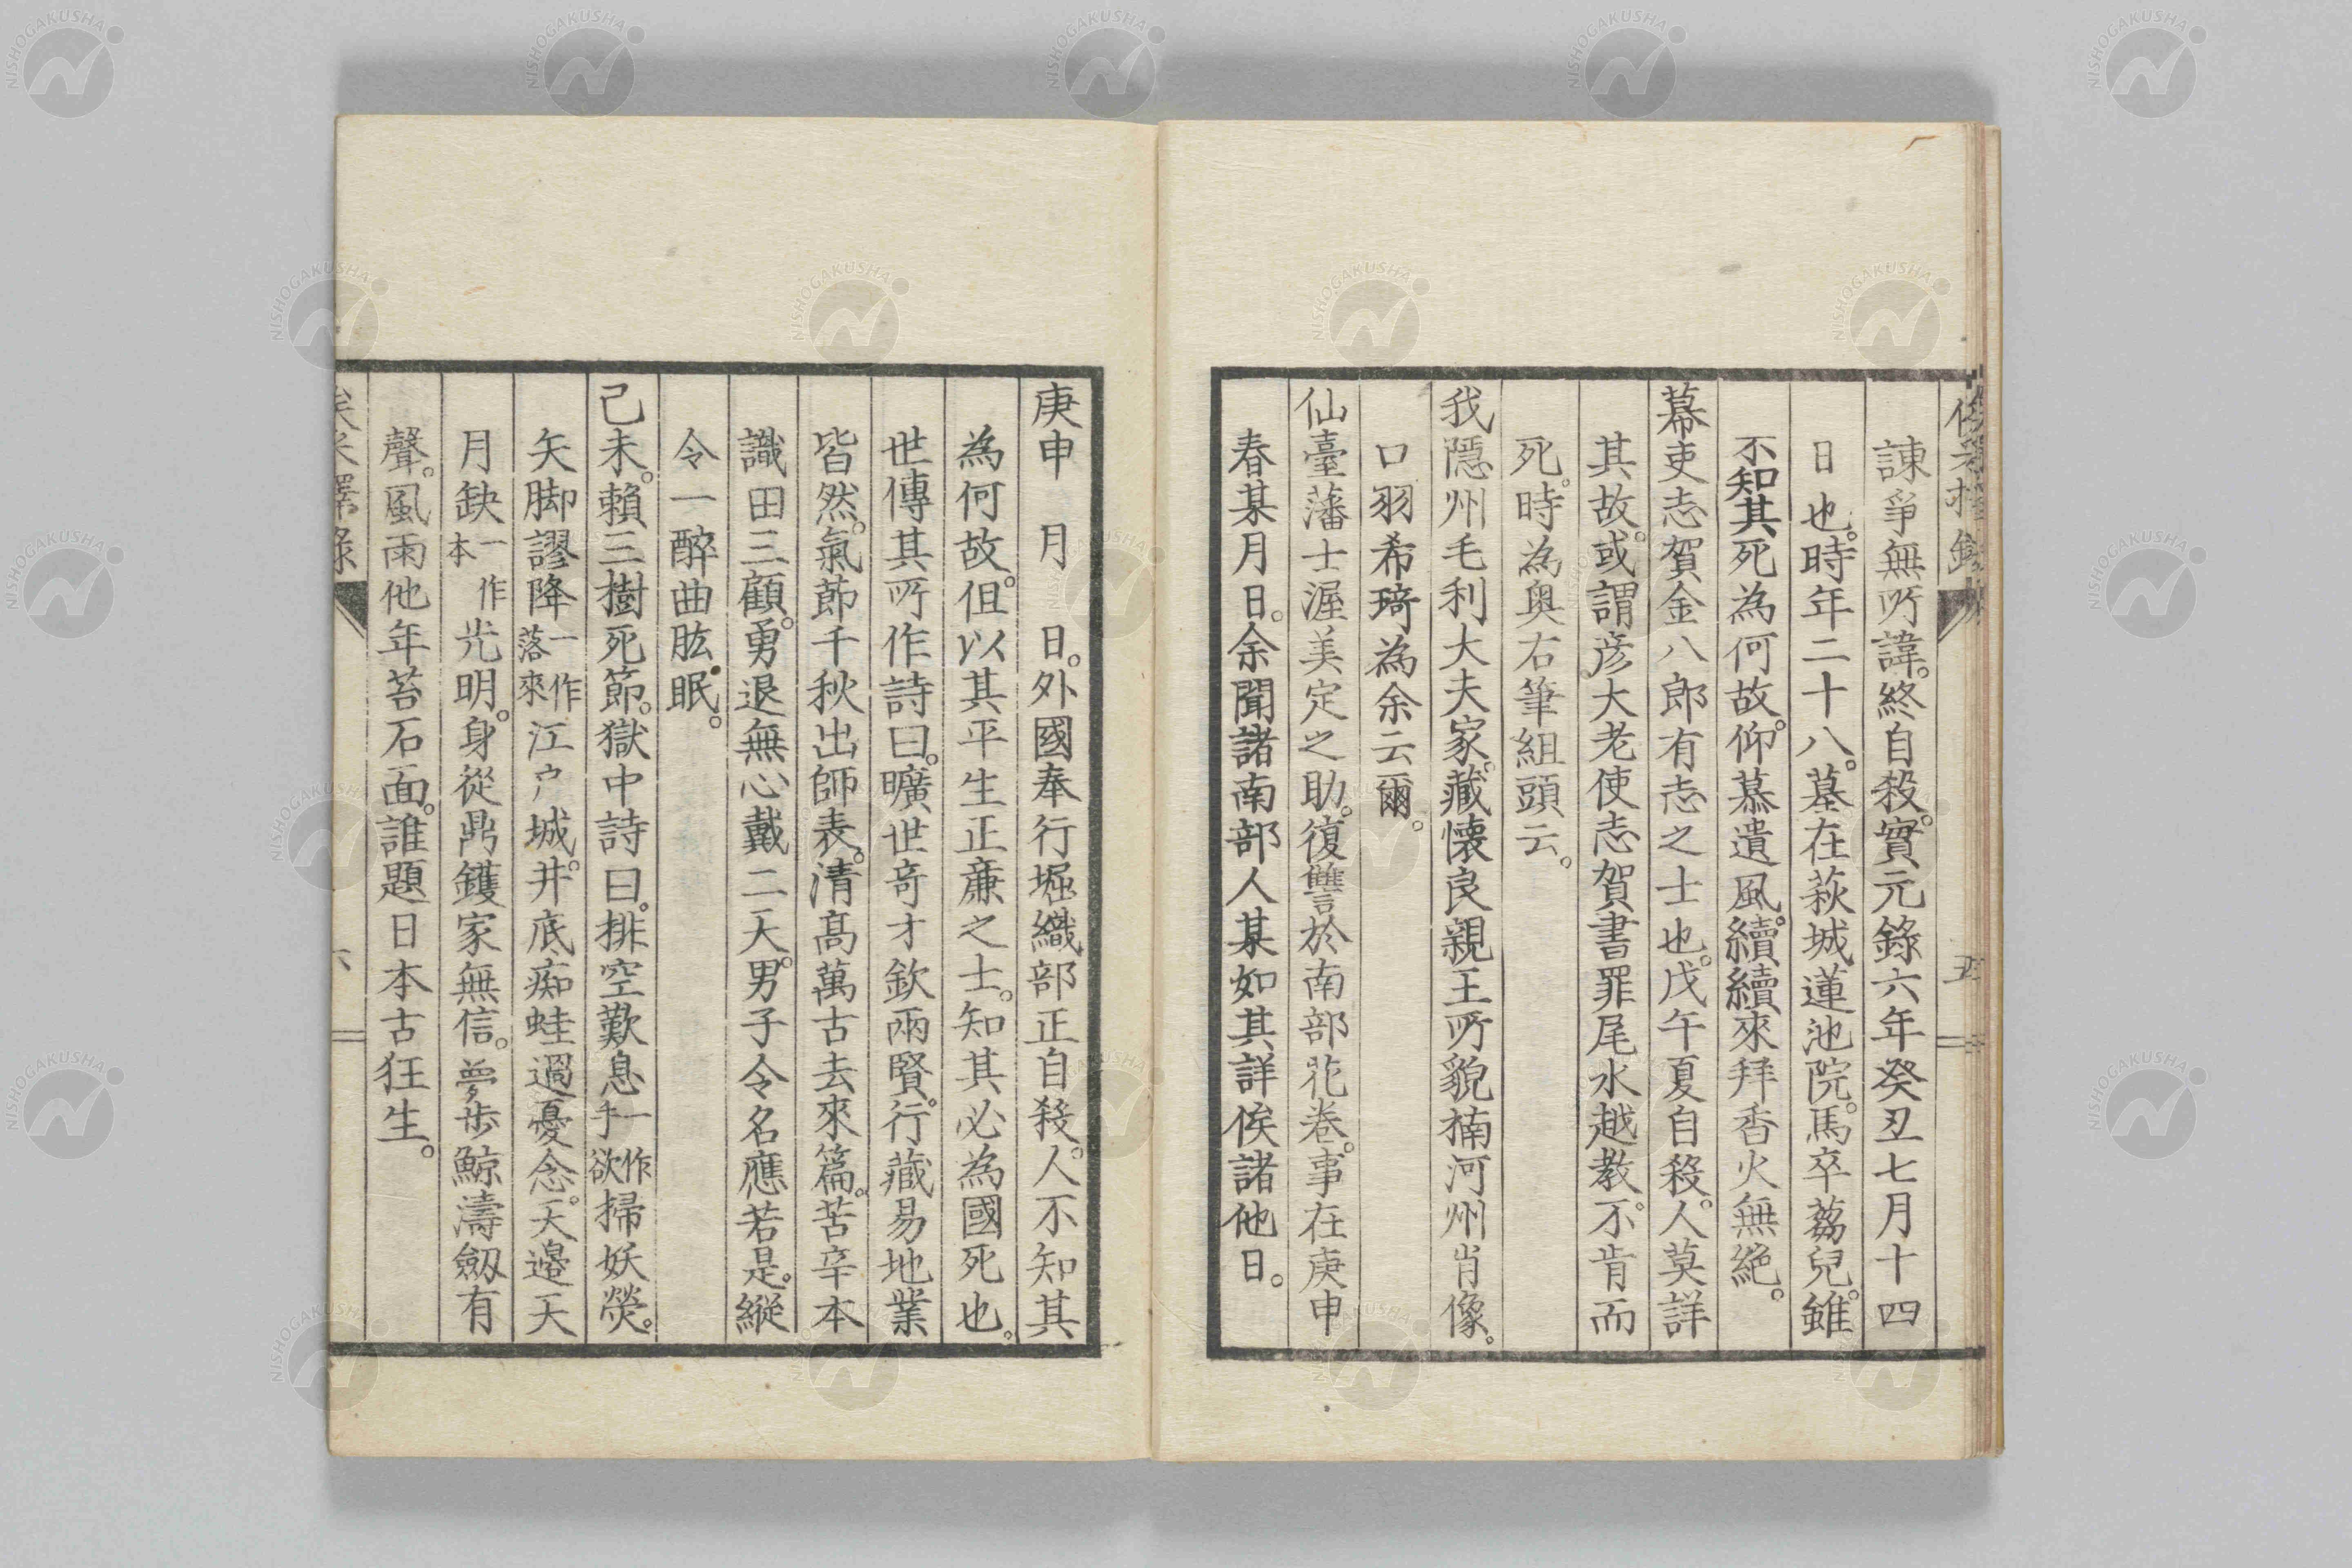 諫爭無所諱。終自殺。實元錄六年癸丑七月十四
日也。時年二十八。墓在萩城蓮池院。馬卒蒭兒。雖
不知其死為何故。仰慕遺風。續續來拜香火無絕。
幕吏志賀金八郎有志之士也。戊午夏自殺。人莫詳
其故。或謂。彦大老使志賀書罪尾水越教。不肯而
死。時為奥右筆組頭云。
我隱州毛利大夫家。藏懷良親王所貌楠河州肖像。
口羽希琦為余云爾。
仙臺藩士渥美定之助。復讐於南部花巻。事在庚申
春某月日。余聞諸南部人某如其詳俟諸他日。
五
庚申 月 日。外國奉行堀織部正自殺。人不知其
為何故。但以其平生正廉之士。知其必為國死也。
世傳其所作詩曰。曠世奇才欽兩賢。行藏易地業
皆然。氣節千秋出師表。清高萬古去來篇。苦辛本
識田三顧。勇退無心戴二天。男子令名應若是。縱
令一醉曲肱眠。
己未。賴三樹死節。獄中詩曰。排空歎息一作手欲掃妖熒。
矢脚謬降一作落來江戸城。井底痴蛙過憂念。天邊天
月缺一本作光明。身從鼎鑊家無信。夢歩鯨濤劔有
聲。風雨他年苔石面。誰題日本古狂生。
六
NISHOGAKUSHA